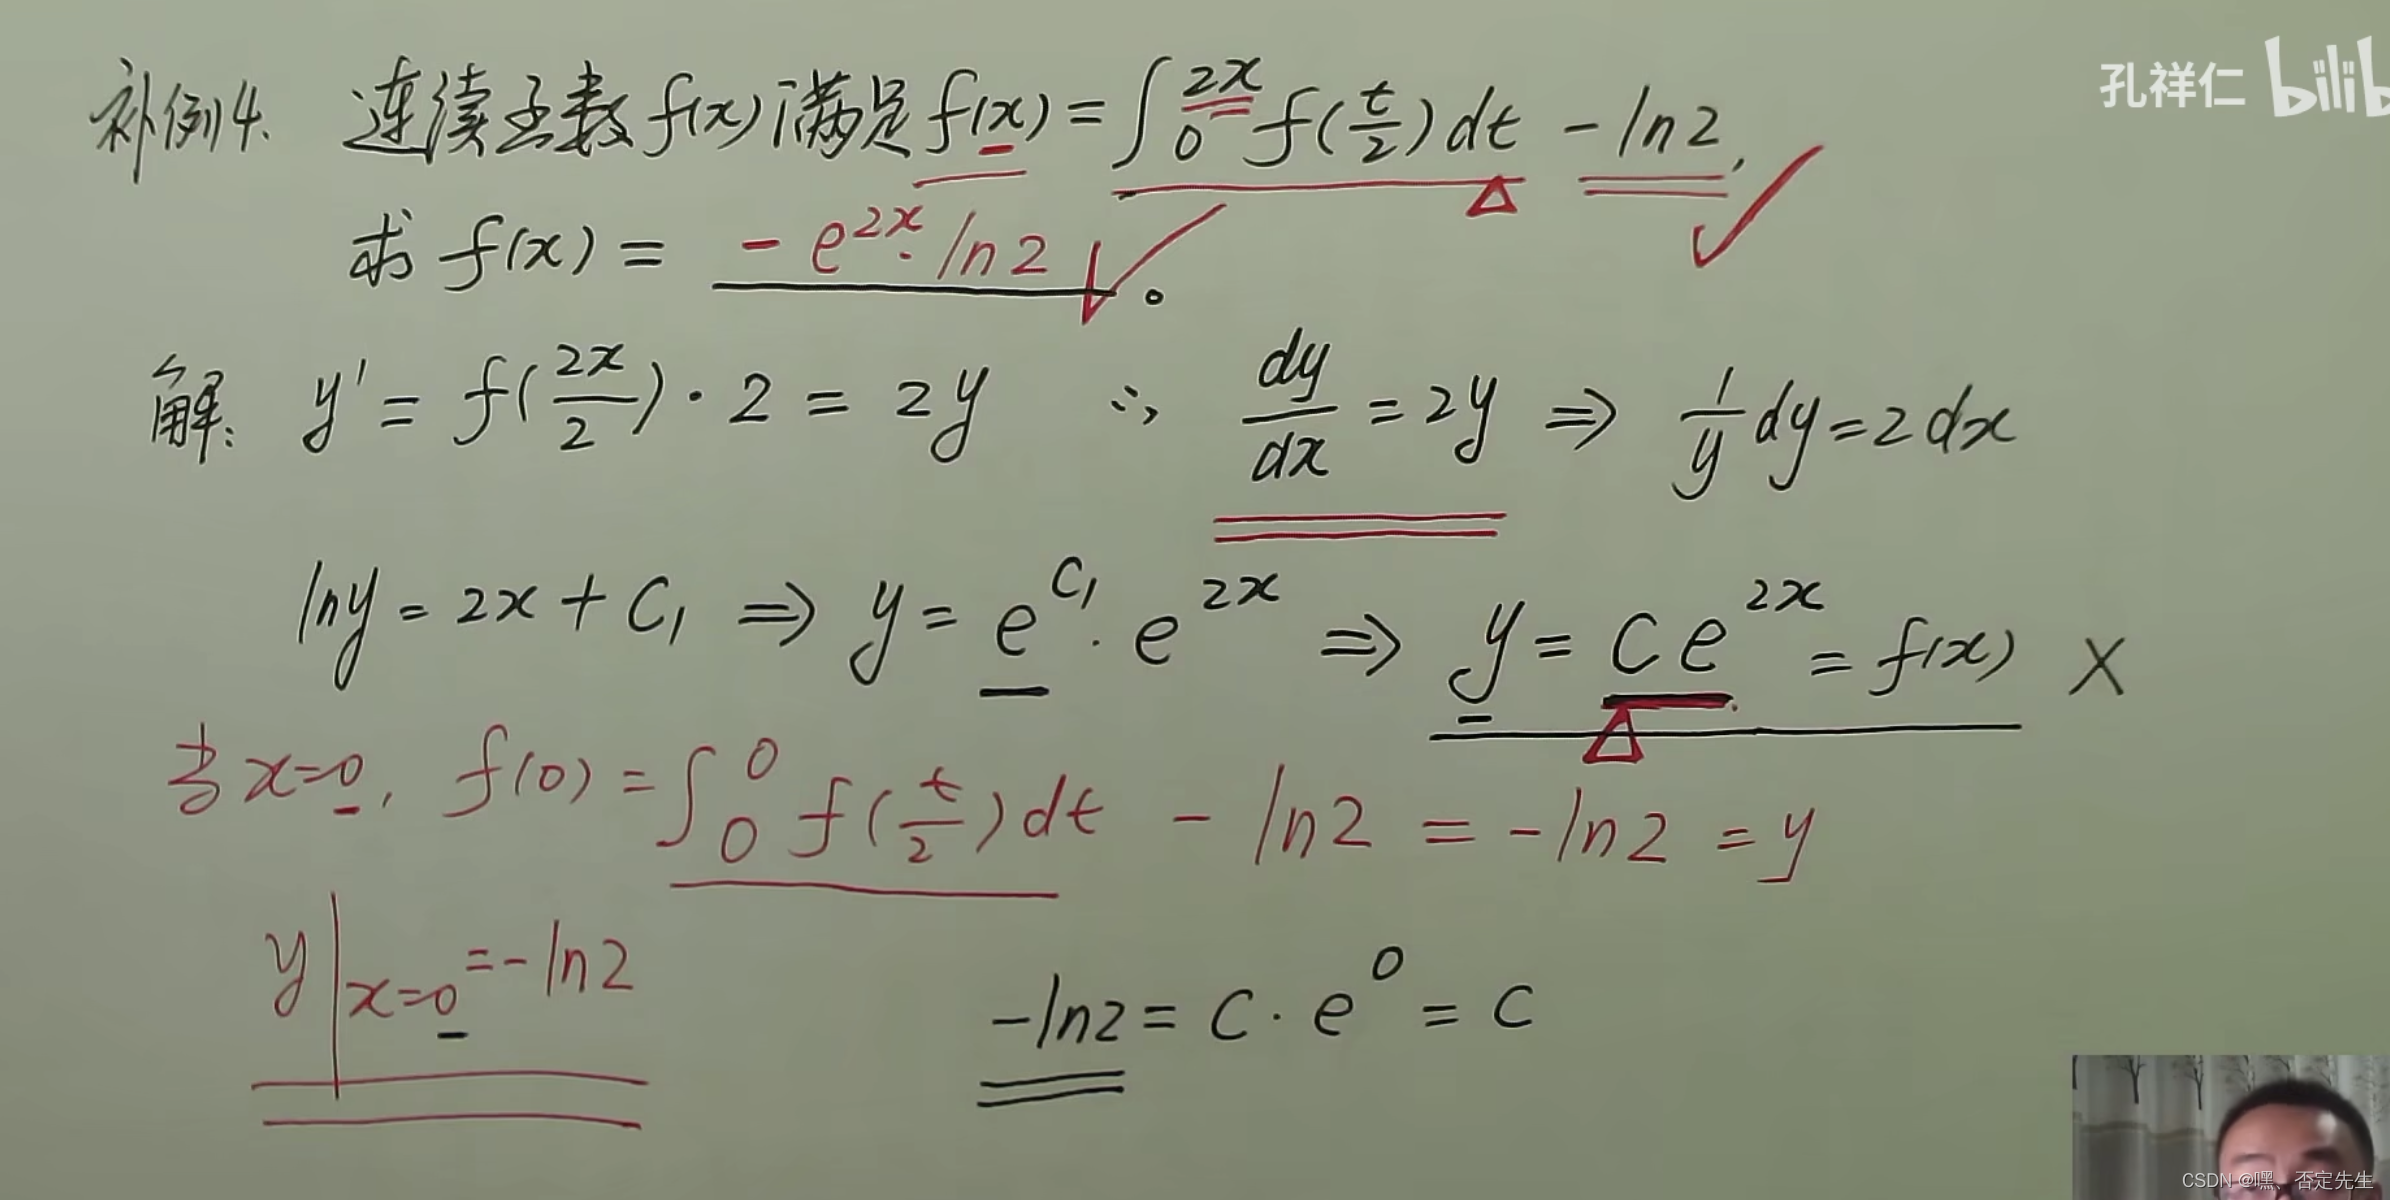 孔祥仁 bilib
补例4. 连续函数f(x)满足f(x) = ∫₀^{2x} f(t/2)dt - ln2,
求 f(x) = -e^{2x}·ln2 。
解: y' = f(2x/2)·2 = 2y ∴ dy/dx = 2y ⇒ 1/y dy = 2dx
lny = 2x + C₁ ⇒ y = e^{C₁}·e^{2x} ⇒ y = Ce^{2x} = f(x) ×
当x=0, f(0) = ∫₀^0 f(t/2)dt - ln2 = -ln2 = y
y|x=0 = -ln2 -ln2 = C·e^0 = C
CSDN @嘿、否定先生